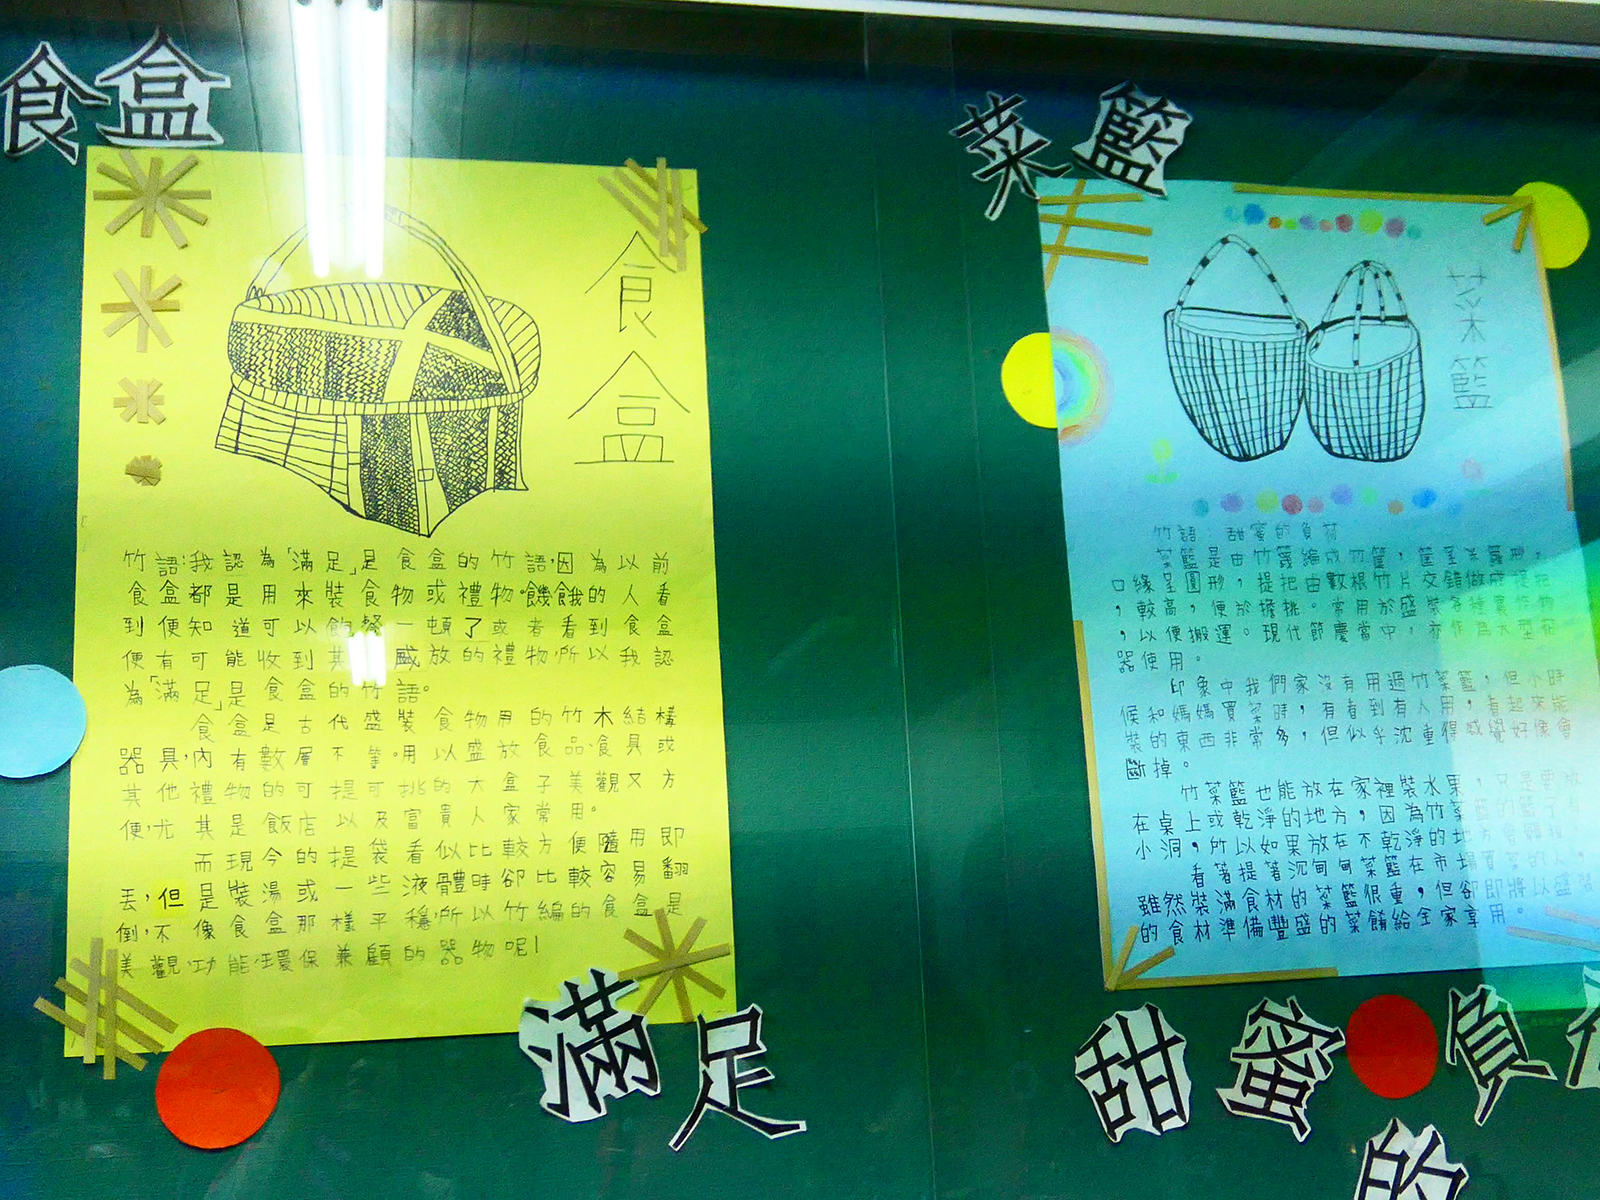 食盒
食盒
竹語:我認為「滿足」是食盒的竹語,因為以前
食盒都是用來裝食物或禮物,饑餓的人看
到便知道可以飽餐一頓了或者看到食盒
便有可能收到其 盛放的禮物,所以我認
為「滿足」是食盒的竹語。
食盒是古代盛裝食物用的竹木結構
器具,內有數層不等。用以盛放食品、食具或
其他禮物的可提可挑的大盒子美觀又方
便,尤其是飯店以及富貴人家常用。
而現今的提袋看似比較方便隨用即
丟,但是裝湯或一些液體時卻比較容易翻
倒,不像食盒那樣平穩,所以竹編的食盒是
美觀,功能,環保兼顧的器物呢!
滿足
菜籃
菜籃
竹語:甜蜜的負荷
菜籃是由竹篾編成竹筐,筐呈
口緣呈圓形,提把由數根竹片交錯做成提把
,較高,便於擔挑。常用於盛裝各種農作物
,以便搬運。現代節慶當中,亦作為大型花
器使用。
印象中我們家沒有用過竹菜籃,但小時
候和媽媽買菜時,有看到有人用,看起來能
裝的東西非常多,但似乎沈重得感覺好像會
斷掉。
竹菜籃也能放在家裡裝水果,只是要放
在桌上或乾淨的地方,因為竹菜籃的籃子有
小洞,所以如果放在不乾淨的地方會
看著提著沉甸甸菜籃在市場買菜的人,
雖然裝滿食材的菜籃很重,但卻即將以盛裝
的食材準備豐盛的菜餚給全家享用。
甜蜜的負